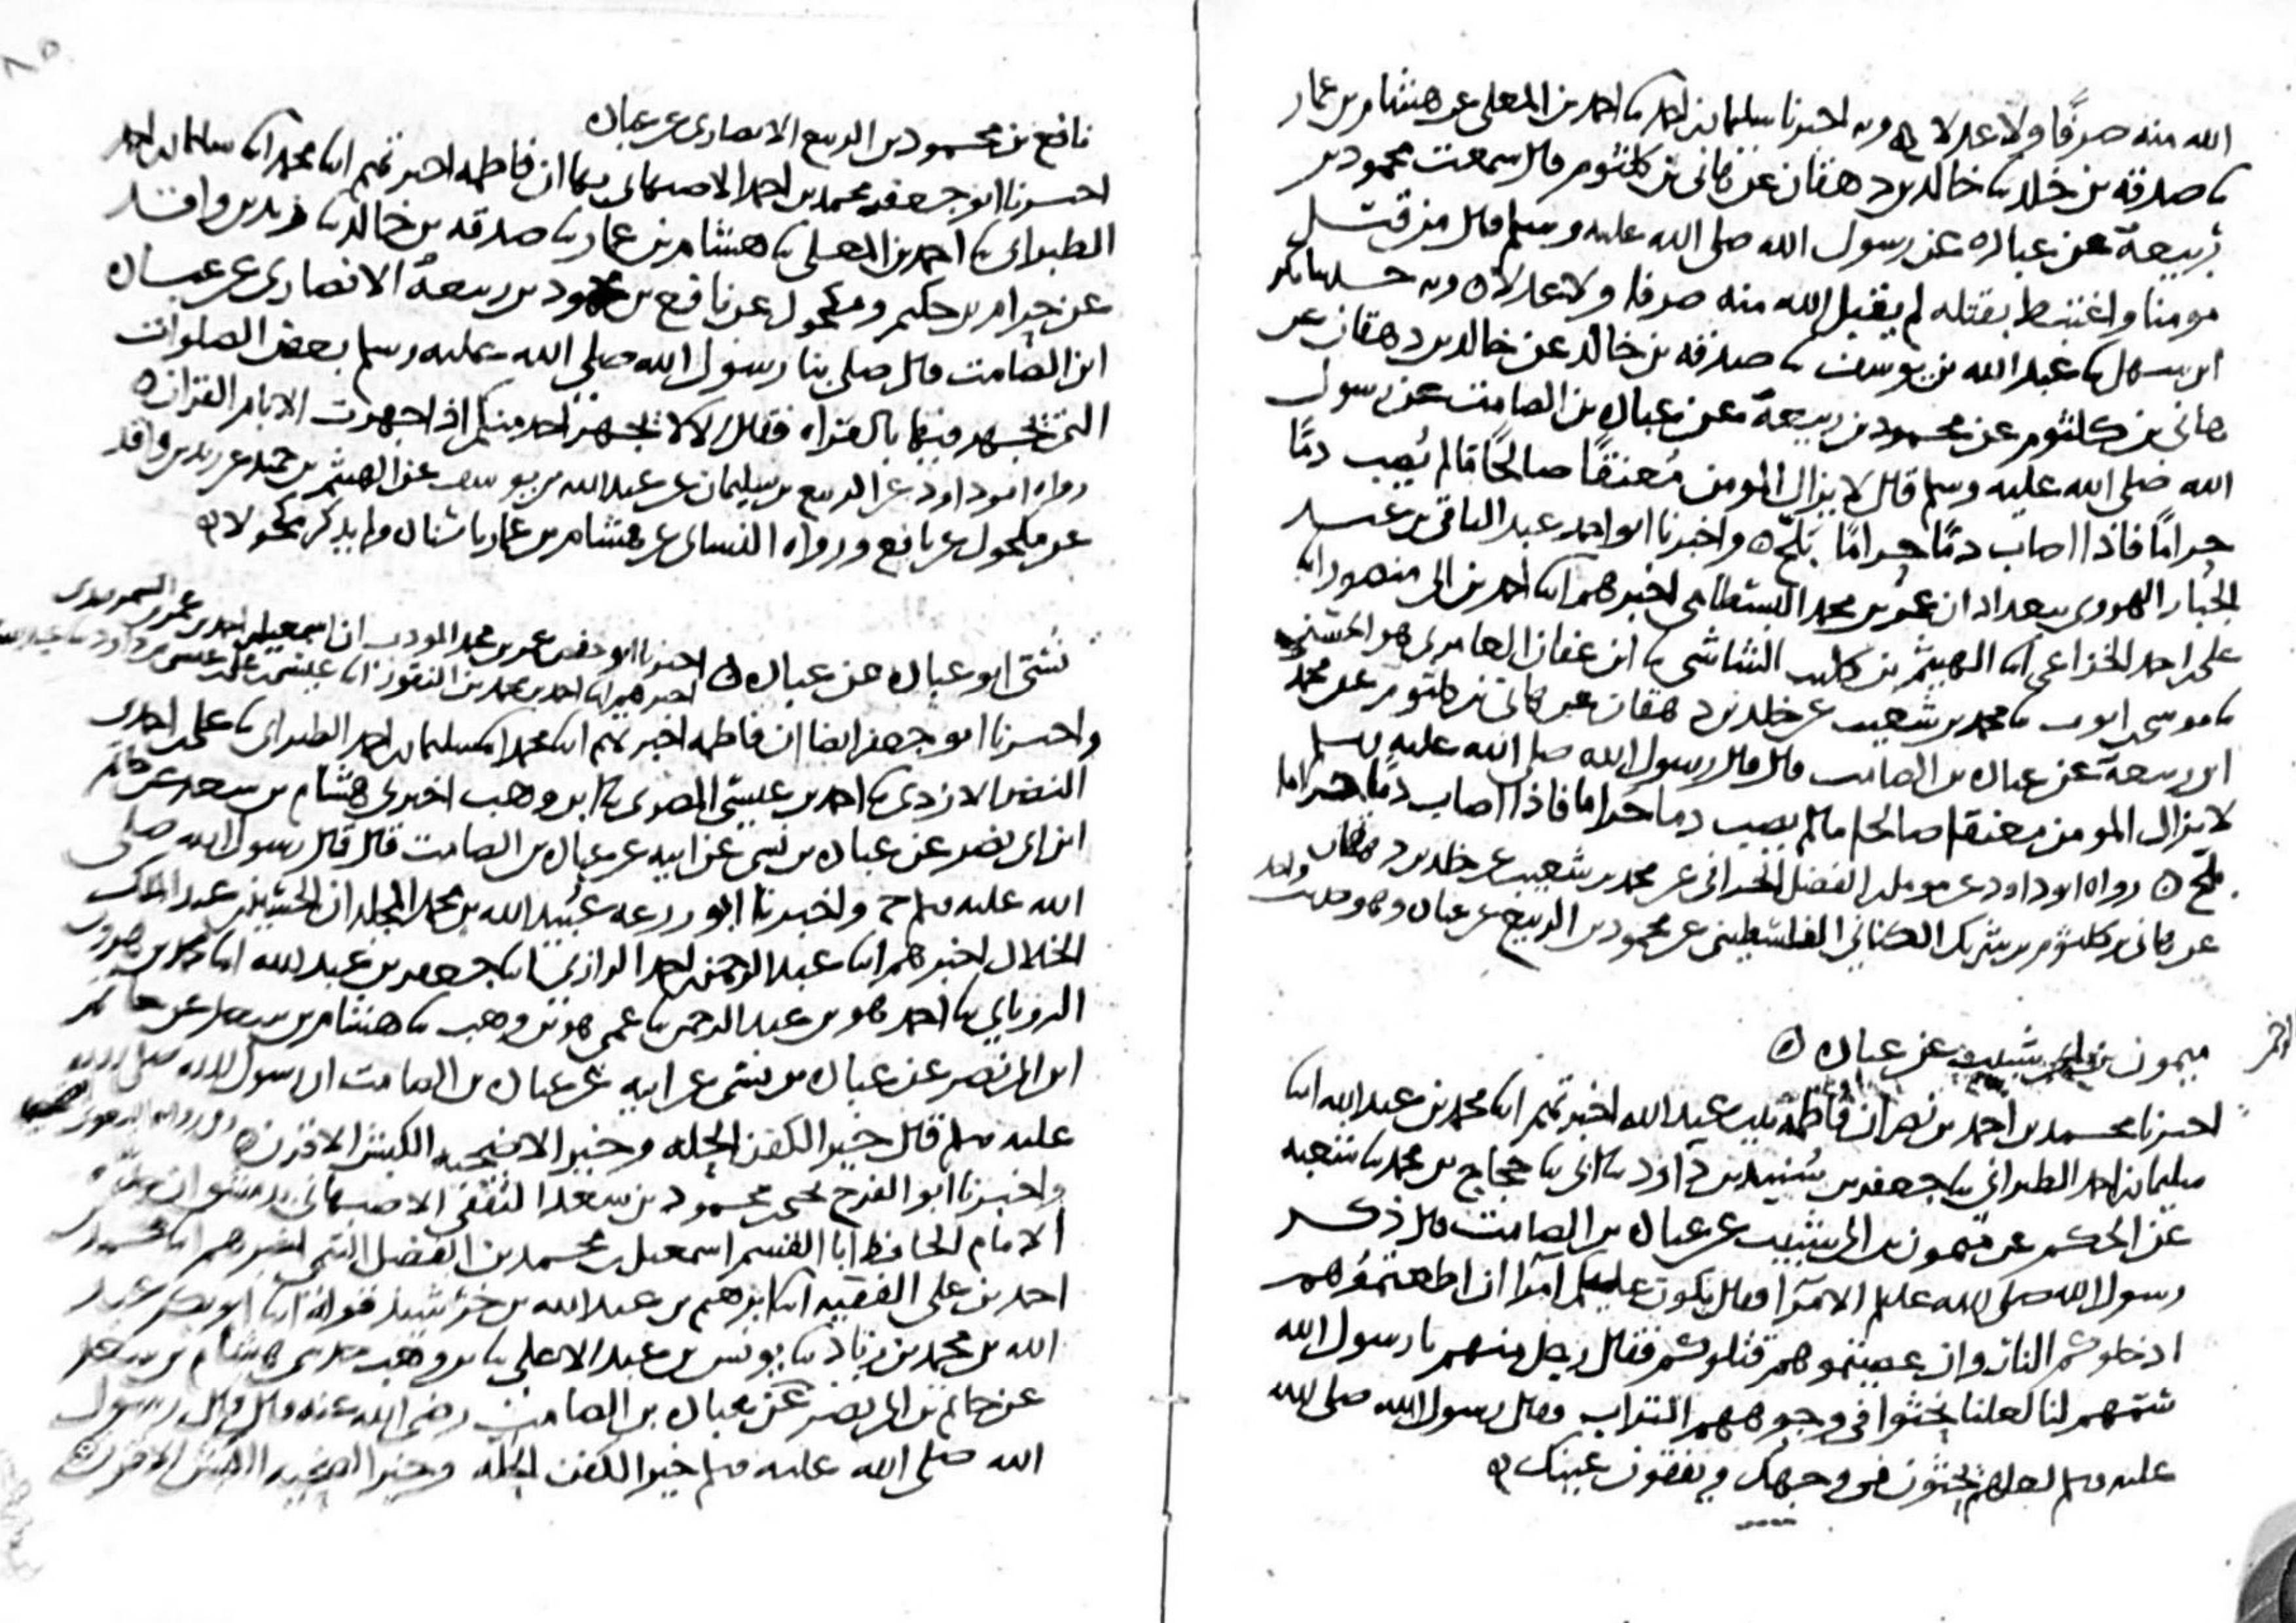 الله منه صرفا ولا عدلا وبه اخبرنا سليمان بن احمد نا احمد بن المعلى عن هشام بن عمار
نا صدقة بن خلد نا خالد بن دهقان عن هانى بن كلثوم قال سمعت محمود بن
ربيعة عن عباده عن رسول الله صلى الله عليه وسلم قال من قتل
مومنا واغتبط بقتله لم يقبل الله منه صرفا ولا عدلا وبه نا بكر
ابن سهل نا عبد الله بن يوسف نا صدقه بن خالد عن خالد بن دهقان عن
هانى بن كلثوم عن محمود بن ربيعة عن عباده بن الصامت عن رسول
الله صلى الله عليه وسلم قال لا يزال المومن معنقا صالحا ما لم يصب دما
حراما فاذا اصاب دما حراما بلح واخبرنا ابو احمد عبد الباقى بن عبد
الجبار الهروى ببغداد ان عمر بن محمد البسطامى اخبرهم انا احمد بن ابى منصور انا
على احمد الخزاعى انا الهيثم بن كليب الشاشى نا ابن عفان العامرى هو الحسن
نا موسى ايوب نا محمد بن شعيب عن خلد بن دهقان عن هانى بن كلثوم عن محمد
ابن ربيعة عن عباده بن الصامت قال قال رسول الله صلى الله عليه وسلم
لا يزال المومن معنقا صالحا ما لم يصب دما حراما فاذا اصاب دما حراما
بلح رواه ابو داود عن مومل بن الفضل الحرانى عن محمد بن شعيب عن خلد بن دهقان
عن هانى بن كلثوم بن شريك الكنانى الفلسطينى عن محمود بن الربيع عن عباده
ميمون بن ابى شبيب عن عباده
اخبرنا محمد بن احمد بن نصر ان فاطمة بنت عبد الله اخبرتهم انا محمد بن عبد الله انا
سليمان بن احمد الطبرانى نا جعفر بن سنيد بن داود نا ابى نا حجاج بن محمد نا شعبه
عن الحكم عن ميمون بن ابى شبيب عن عباده بن الصامت قال ذكر
رسول الله صلى الله عليه الامرا فقال يكون عليكم امرا ان اطعتموهم
ادخلوكم النار وان عصيتموهم قتلوكم فقال رجل منهم يا رسول الله
سمهم لنا لعلنا نحثوا فى وجوههم التراب فقال رسول الله صلى الله
عليه وسلم لعلهم يحثون فى وجهك ويفقون عينك
نافع بن محمود بن الربيع الانصارى عن عباده
اخبرنا ابو جعفر محمد بن احمد الاصبهانى بها ان فاطمه اخبرتهم انا محمد انا سليمان بن احمد
الطبرانى نا احمد بن المعلى نا هشام بن عمار نا صدقه بن خالد نا زيد بن واقد
عن حرام بن حكيم ومكحول عن نافع بن محمود بن ربيعة الانصارى عن عباده
ابن الصامت قال صلى بنا رسول الله صلى الله عليه وسلم بعض الصلوات
التى يجهر فيها بالقراه فقال لا يجهرن احد منكم اذا جهرت الا بام القران
رواه ابو داود عن الربيع بن سليمان عن عبد الله بن يوسف عن الهيثم بن حميد عن زيد بن واقد
عن مكحول عن نافع ورواه النساى عن هشام بن عمار باسناده ولم يذكر مكحولا
نسى ابو عباده عن عباده اخبرنا ابو حفص عمر بن محمد المودب ان اسمعيل بن احمد بن عمر السمرقندى
اخبرهم انا احمد بن محمد بن النقور انا عيسى بن على بن عيسى بن داود نا عبد الله
واخبرنا ابو جعفر ايضا ان فاطمه اخبرتهم انا محمد انا سليمان بن احمد الطبرانى نا على بن احمد بن
النضر الازدى نا احمد بن عيسى المصرى نا ابن وهب اخبرنى هشام بن سعد عن حاتم
ابن ابى نصر عن عباده بن نسى عن ابيه عن عباده بن الصامت قال قال رسول الله صلى
الله عليه وسلم ح واخبرنا ابو زرعه عبيد الله بن محمد ان الحسين بن عبد الملك
الخلال اخبرهم انا عبد الرحمن بن احمد الرازى انا جعفر بن عبد الله انا محمد بن هرون
الرويانى نا احمد هو بن عبد الرحمن نا عمى هو بن وهب نا هشام بن سعد عن حاتم
ابن ابى نصر عن عباده بن نسى عن ابيه عن عباده بن الصامت ان رسول الله صلى الله
عليه وسلم قال خير الكفن الحله وخير الاضحيه الكبش الاقرن
واخبرنا ابو الفرج يحيى بن محمود بن سعد الثقفى الاصبهانى بدمشق ان
الامام الحافظ ابا القسم اسمعيل بن محمد بن الفضل التيمى اخبرهم انا محمد بن
احمد بن على الفقيه انا ابرهيم بن عبد الله بن خرشيد قوله انا ابو بكر عبد
الله بن محمد بن زياد نا يونس بن عبد الاعلى نا بن وهب حدثنى هشام بن سعد
عن حاتم بن ابى نصر عن عباده بن الصامت رضى الله عنه قال قال رسول
الله صلى الله عليه وسلم خير الكفن الحله وخير الضحيه الكبش الاقرن